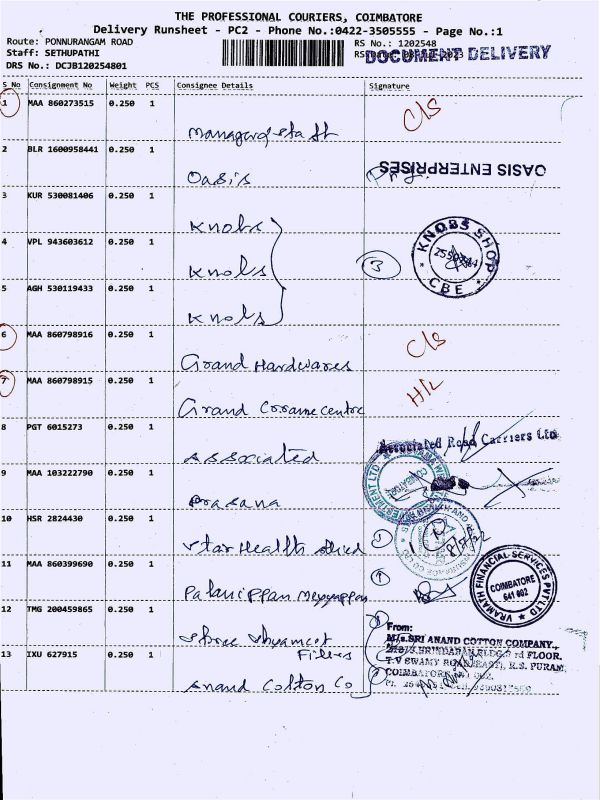 THE PROFESSIONAL COURIERS, COIMBATORE
Delivery Runsheet - PC2 - Phone No.:0422-3505555 - Page No.:1
Route: PONNURANGAM ROAD
RS No.: 1202548
Staff: SETHUPATHI
DOCUMENT DELIVERY
DRS No.: DCJB120254801
S No Consignment No Weight PCS Consignee Details Signature
1 MAA 860273515 0.250 1
C/S
2 BLR 1600958441 0.250 1
Oasis
OASIS ENTERPRISES
3 KUR 530081406 0.250 1
Knobs
4 VPL 943603612 0.250 1
Knobs
3
KNOBS SHOP
CBE
5 AGH 530119433 0.250 1
Knobs
6 MAA 860798916 0.250 1
Grand Hardwares
C/S
7 MAA 860798915 0.250 1
Grand
H/L
8 PGT 6015273 0.250 1
Associated
Associated Road Carriers Ltd
9 MAA 103222790 0.250 1
Prasana
10 HSR 2824430 0.250 1
Star Health Allied
11 MAA 860399690 0.250 1
Palaniappan Meyyappan
VRAMATH FINANCIAL SERVICES PVT LTD
COIMBATORE
641 002
12 TMG 200459865 0.250 1
Shree
From:
M/s.SRI ANAND COTTON COMPANY.,
FLOOR.
T.V SWAMY ROAD (EAST), R.S. PURAM,
13 IXU 627915 0.250 1
Anand Cotton Co